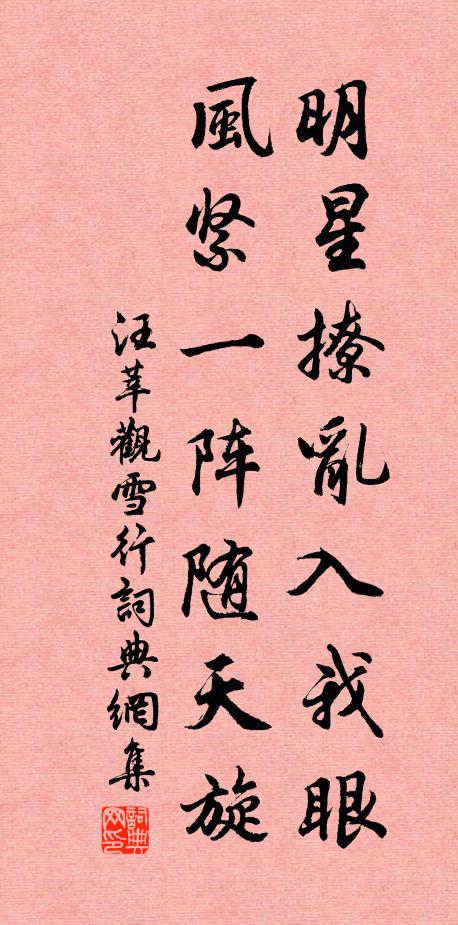 明星撩亂入我眼
風紧一阵随天旋
汪莘觀雪行詞典網集
詞典网印